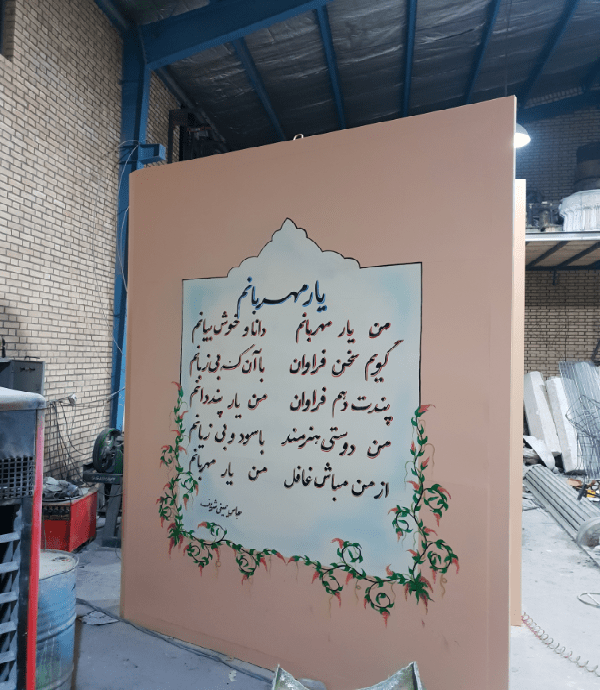 یار مهربانم
من یار مهربانم دانا و خوش بیانم
گویم سخن فراوان با آن که بی زبانم
پندت دهم فراوان من یار پند دانم
من دوستی هنرمند با سود و بی زیانم
از من مباش غافل من یار مهربانم